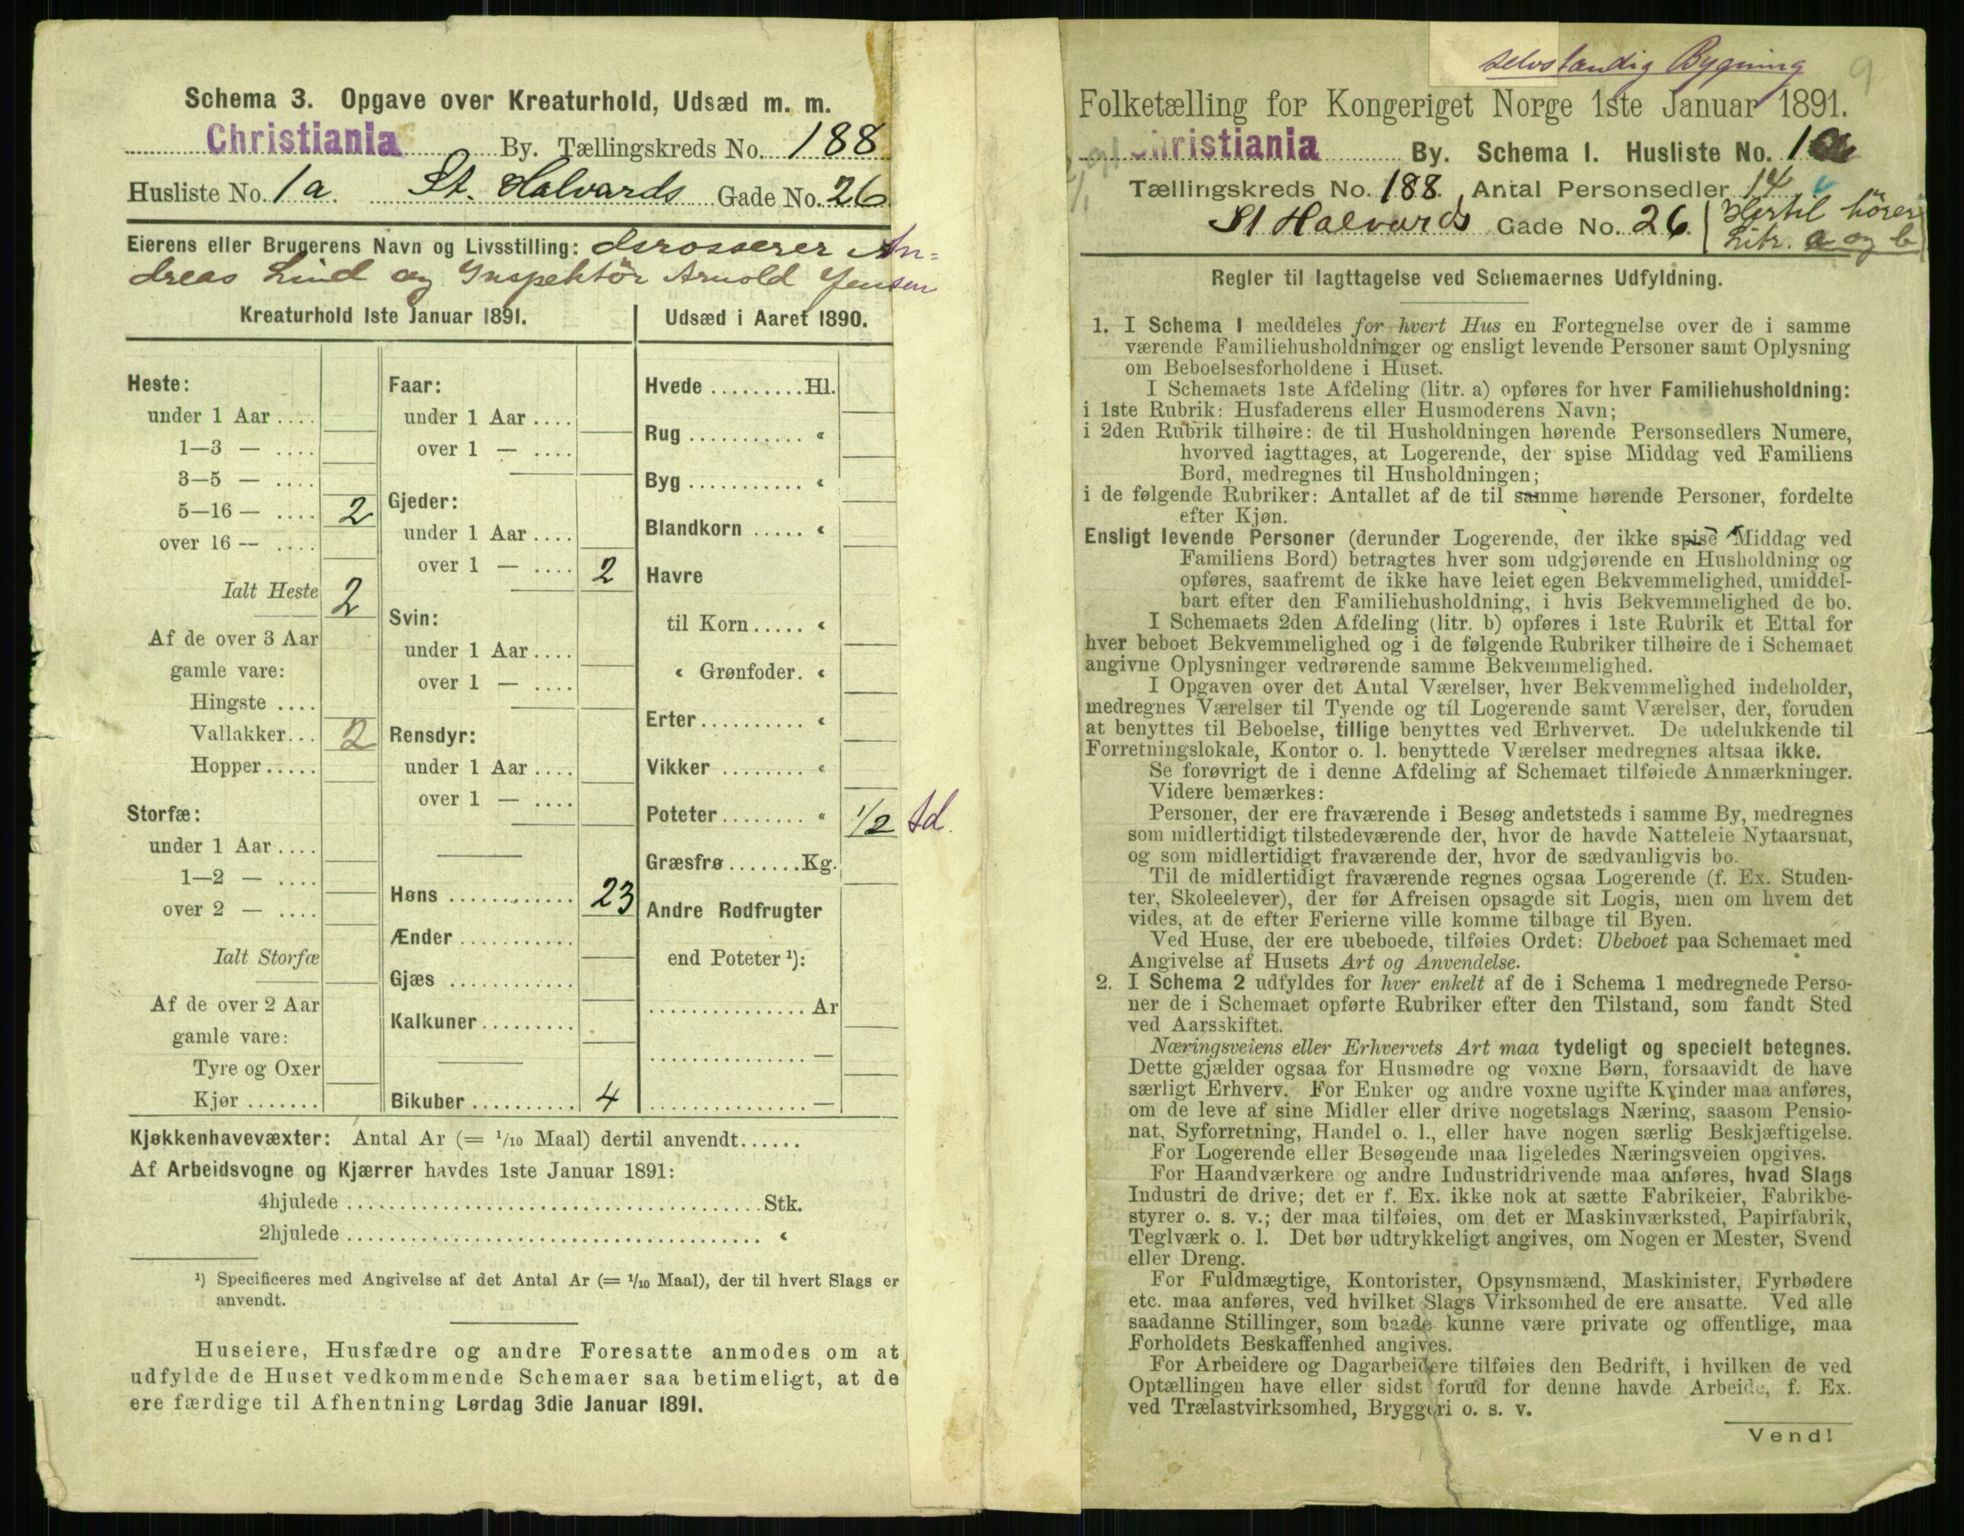 Schema 3. Opgave over Kreaturhold, Udsæd m. m.
Christiania By. Tællingskreds No. 188
Husliste No. 1a. St. Halvards Gade No. 26
Eierens eller Brugerens Navn og Livsstilling: Grosserer An=
dreas Lind og Inspektör Arnold Jensen
Kreaturhold 1ste Januar 1891.
Heste:
under 1 Aar ....
1—3 — ....
3—5 — ....
5—16 — .... 2
over 16 — ....
Ialt Heste 2
Af de over 3 Aar
gamle vare:
Hingste ....
Vallakker... 2
Hopper.....
Storfæ:
under 1 Aar....
1—2 — ....
over 2 — ....
Ialt Storfæ
Af de over 2 Aar
gamle vare:
Tyre og Oxer
Kjør.......
Faar:
under 1 Aar ....
over 1 — ....
Gjeder:
under 1 Aar....
over 1 — .... 2
Svin:
under 1 Aar....
over 1 — ....
Rensdyr:
under 1 Aar....
over 1 — ....
Høns ........... 23
Ænder ...........
Gjæs ...........
Kalkuner.........
Bikuber.......... 4
Udsæd i Aaret 1890.
Hvede .........Hl.
Rug ........... «
Byg ........... «
Blandkorn ..... «
Havre
til Korn..... «
« Grønfoder. «
Erter.......... «
Vikker ........ «
Poteter........ « 1/2 Td.
Græsfrø.......Kg.
Andre Rodfrugter
end Poteter ¹):
...............Ar
...............—
...............—
Kjøkkenhavevæxter: Antal Ar (= 1/10 Maal) dertil anvendt......
Af Arbeidsvogne og Kjærrer havdes 1ste Januar 1891:
4hjulede ........................................Stk.
2hjulede ........................................ «
¹) Specificeres med Angivelse af det Antal Ar (= 1/10 Maal), der til hvert Slags er
anvendt.
Huseiere, Husfædre og andre Foresatte anmodes om at
udfylde de Huset vedkommende Schemaer saa betimeligt, at de
ere færdige til Afhentning Lørdag 3die Januar 1891.
selvstændig Bygning 9
Folketælling for Kongeriget Norge 1ste Januar 1891.
Christiania By. Schema I. Husliste No. 1a
Tællingskreds No. 188. Antal Personsedler 14
St Halvards Gade No. 26. (Hertil hörer
Litr. a og b)
Regler til Iagttagelse ved Schemaernes Udfyldning.
1. I Schema 1 meddeles for hvert Hus en Fortegnelse over de i samme
værende Familiehusholdninger og ensligt levende Personer samt Oplysning
om Beboelsesforholdene i Huset.
I Schemaets 1ste Afdeling (litr. a) opføres for hver Familiehusholdning:
i 1ste Rubrik: Husfaderens eller Husmoderens Navn;
i 2den Rubrik tilhøire: de til Husholdningen hørende Personsedlers Numere,
hvorved iagttages, at Logerende, der spise Middag ved Familiens
Bord, medregnes til Husholdningen;
i de følgende Rubriker: Antallet af de til samme hørende Personer, fordelte
efter Kjøn.
Ensligt levende Personer (derunder Logerende, der ikke spise Middag ved
Familiens Bord) betragtes hver som udgjørende en Husholdning og
opføres, saafremt de ikke have leiet egen Bekvemmelighed, umiddel-
bart efter den Familiehusholdning, i hvis Bekvemmelighed de bo.
I Schemaets 2den Afdeling (litr. b) opføres i 1ste Rubrik et Ettal for
hver beboet Bekvemmelighed og i de følgende Rubriker tilhøire de i Schemaet
angivne Oplysninger vedrørende samme Bekvemmelighed.
I Opgaven over det Antal Værelser, hver Bekvemmelighed indeholder,
medregnes Værelser til Tyende og til Logerende samt Værelser, der, foruden
at benyttes til Beboelse, tillige benyttes ved Erhvervet. De udelukkende til
Forretningslokale, Kontor o. l. benyttede Værelser medregnes altsaa ikke.
Se forøvrigt de i denne Afdeling af Schemaet tilføiede Anmærkninger.
Videre bemærkes:
Personer, der ere fraværende i Besøg andetsteds i samme By, medregnes
som midlertidigt tilstedeværende der, hvor de havde Natteleie Nytaarsnat,
og som midlertidigt fraværende der, hvor de sædvanligvis bo.
Til de midlertidigt fraværende regnes ogsaa Logerende (f. Ex. Studen-
ter, Skoleelever), der før Afreisen opsagde sit Logis, men om hvem det
vides, at de efter Ferierne ville komme tilbage til Byen.
Ved Huse, der ere ubeboede, tilføies Ordet: Ubeboet paa Schemaet med
Angivelse af Husets Art og Anvendelse.
2. I Schema 2 udfyldes for hver enkelt af de i Schema 1 medregnede Perso-
ner de i Schemaet opførte Rubriker efter den Tilstand, som fandt Sted
ved Aarsskiftet.
Næringsveiens eller Erhvervets Art maa tydeligt og specielt betegnes.
Dette gjælder ogsaa for Husmødre og voxne Børn, forsaavidt de have
særligt Erhverv. For Enker og andre voxne ugifte Kvinder maa anføres,
om de leve af sine Midler eller drive nogetslags Næring, saasom Pensio-
nat, Syforretning, Handel o. l., eller have nogen særlig Beskjæftigelse.
For Logerende eller Besøgende maa ligeledes Næringsveien opgives.
For Haandværkere og andre Industridrivende maa anføres, hvad Slags
Industri de drive; det er f. Ex. ikke nok at sætte Fabrikeier, Fabrikbe-
styrer o. s. v.; der maa tilføies, om det er Maskinværksted, Papirfabrik,
Teglværk o. l. Det bør udtrykkeligt angives, om Nogen er Mester, Svend
eller Dreng.
For Fuldmægtige, Kontorister, Opsynsmænd, Maskinister, Fyrbødere
etc. maa anføres, ved hvilket Slags Virksomhed de ere ansatte. Ved alle
saadanne Stillinger, som baade kunne være private og offentlige, maa
Forholdets Beskaffenhed angives.
For Arbeidere og Dagarbeidere tilføies den Bedrift, i hvilken de ved
Optællingen have eller sidst forud for denne havde Arbeide, f. Ex.
ved Trælastvirksomhed, Bryggeri o. s. v.
Vend!